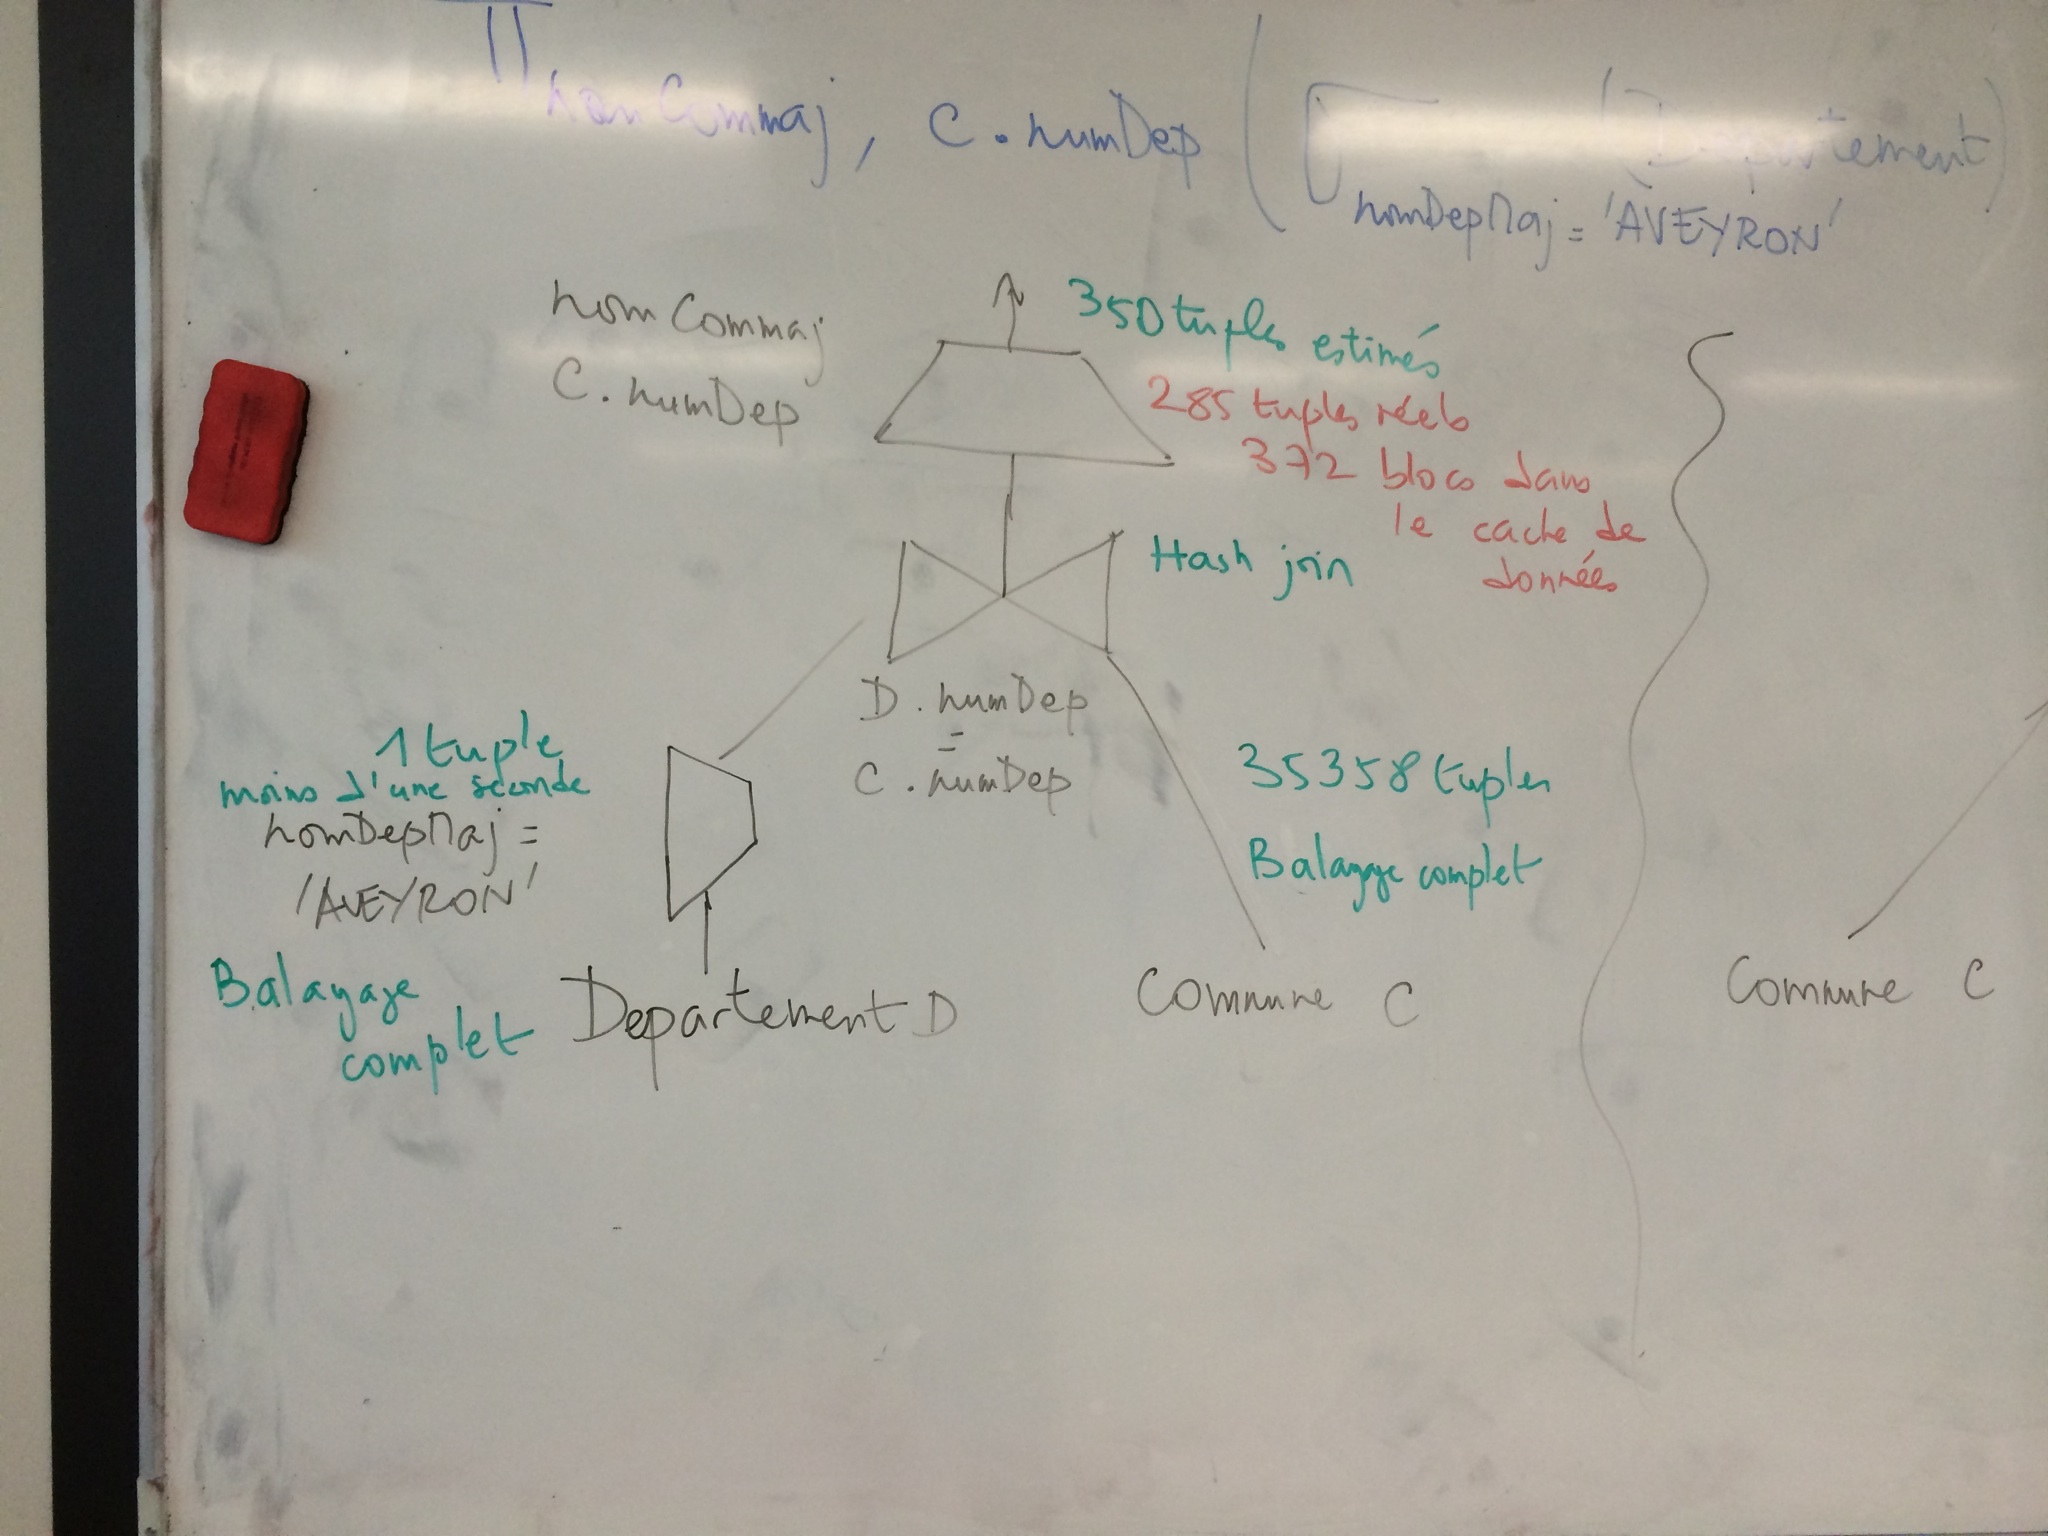 Π nomCommaj, C.numDep ( σ (Departement)
nomDepMaj = 'AVEYRON'
nomCommaj
C.numDep
350 tuples estimés
285 tuples réels
372 blocs dans
le cache de
données
Hash join
D.numDep
=
C.numDep
1 tuple
moins d'une seconde
nomDepMaj =
'AVEYRON'
Balayage
complet
35358 tuples
Balayage complet
Departement D
Commune C
Commune C